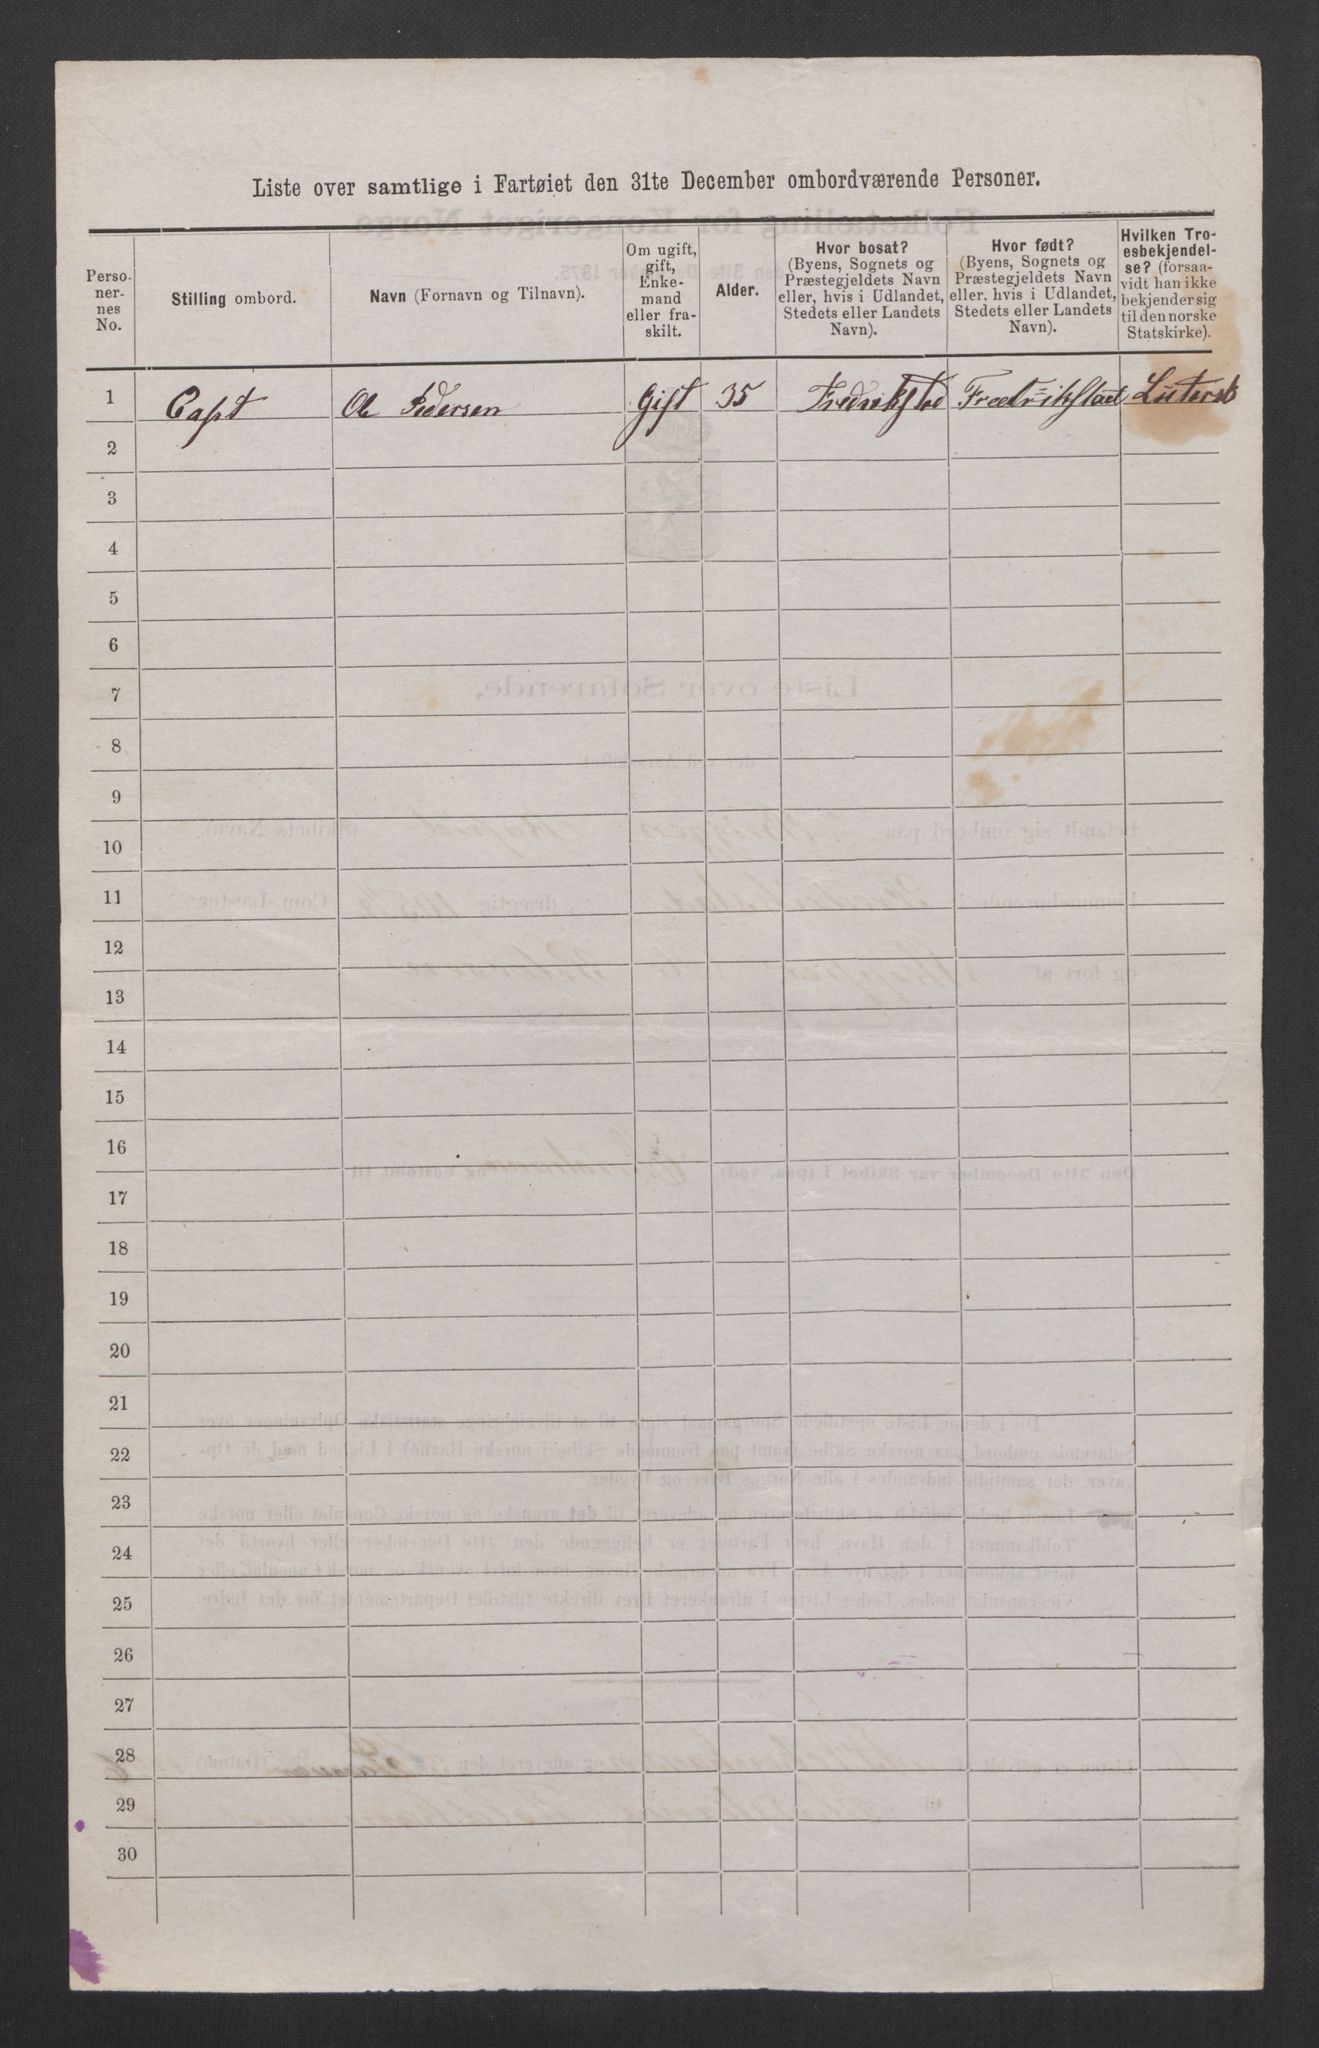 Liste over samtlige i Fartøiet den 31te December ombordværende Personer.
Perso-
ner-
nes
No.
Stilling ombord.
Navn (Fornavn og Tilnavn).
Om ugift,
gift,
Enke-
mand
eller fra-
skilt.
Alder.
Hvor bosat?
(Byens, Sognets og
Præstegjeldets Navn
eller, hvis i Udlandet,
Stedets eller Landets
Navn).
Hvor født?
(Byens, Sognets og
Præstegjeldets Navn
eller, hvis i Udlandet,
Stedets eller Landets
Navn).
Hvilken Tro-
esbekjendel-
se? (forsaa-
vidt han ikke
bekjender sig
til den norske
Statskirke).
1 Capt Ole Pedersen Gift 35 Fredrikstad Fredrikstad Lutersk
2
3
4
5
6
7
8
9
10
11
12
13
14
15
16
17
18
19
20
21
22
23
24
25
26
27
28
29
30